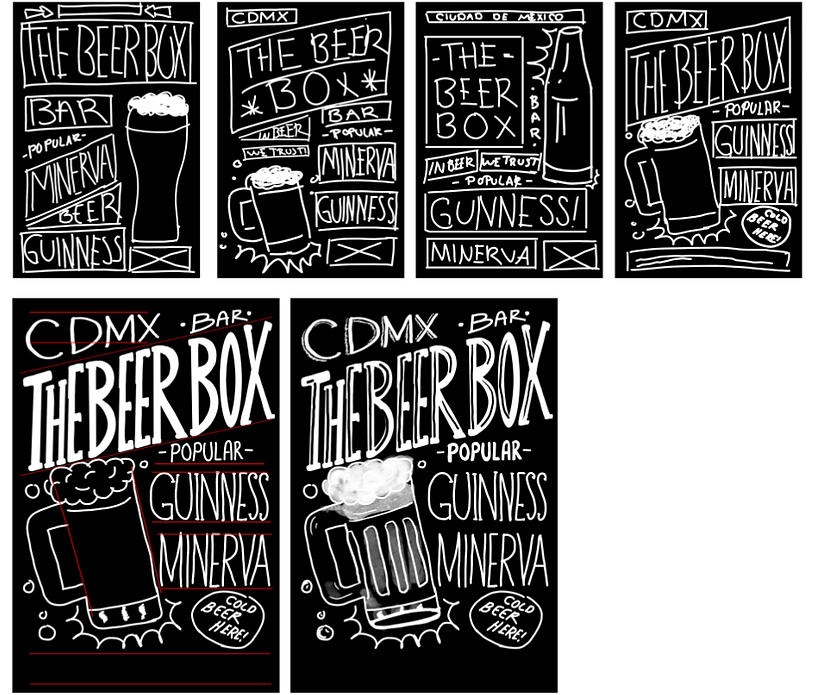 THE BEER BOX
BAR
-POPULAR-
MINERVA
BEER
GUINNESS
CDMX
THE BEER
BOX
IN BEER
WE TRUST!
BAR
-POPULAR-
MINERVA
GUINNESS
CIUDAD DE MÉXICO
-THE-
BEER
BOX
BAR
IN BEER WE TRUST!
- POPULAR -
GUNNESS!
MINERVA
CDMX
THE BEER BOX
-POPULAR-
GUINNESS
MINERVA
COLD
BEER
HERE!
CDMX ·BAR·
THE BEER BOX
-POPULAR-
GUINNESS
MINERVA
COLD
BEER
HERE!
CDMX ·BAR·
THE BEER BOX
-POPULAR-
GUINNESS
MINERVA
COLD
BEER
HERE!